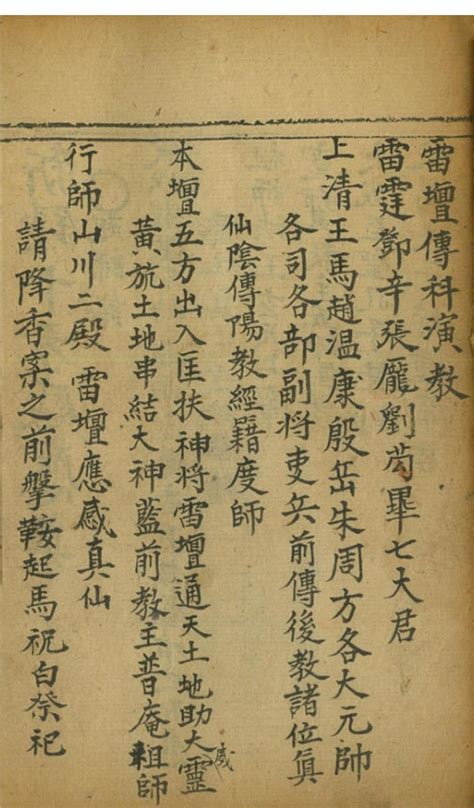 雷壇傳科演教
雷霆鄧辛張龐劉芶畢七大君
上清王馬趙温康殷岳朱周方各大元帥
各司各部副將吏兵前傳後教諸位眞
仙陰傳陽教經籍度師
本壇五方出入匡扶神將雷壇通天土地助大靈
威
黃旊土地串結大神藍前教主普庵祖師
行師山川二殿 雷壇應感真仙
請降香案之前擎鞍起馬祝白祭祀